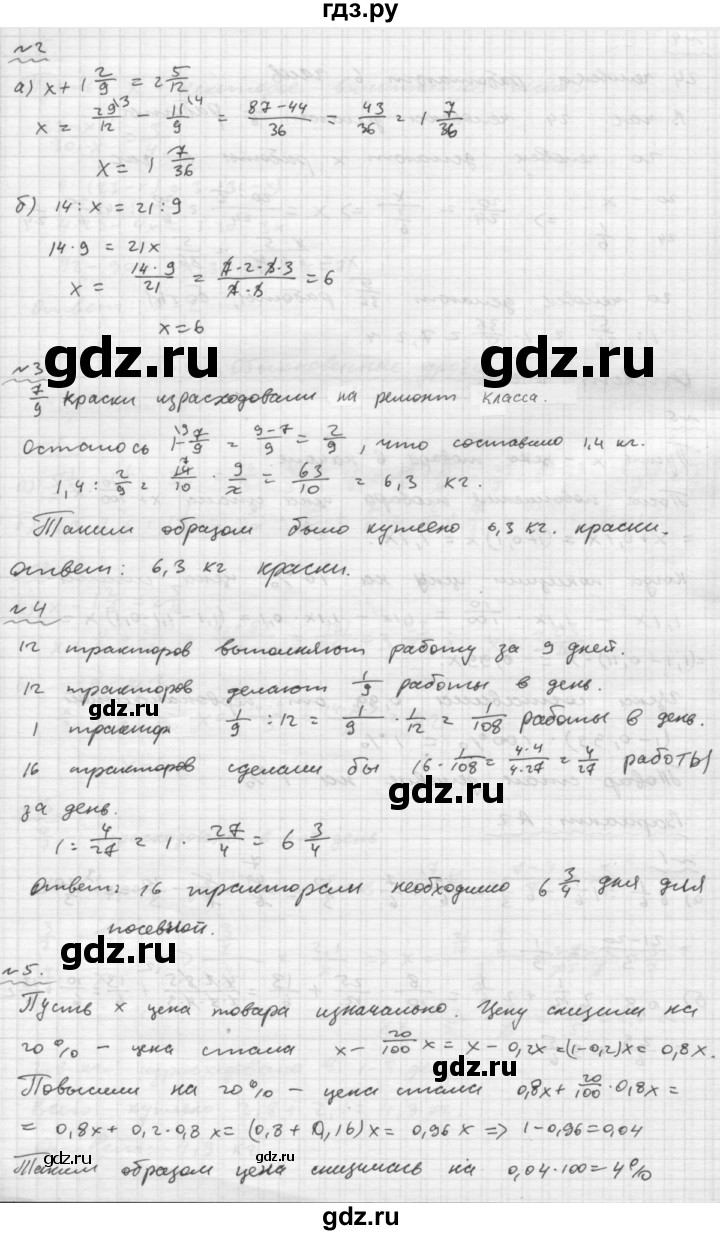 гдз.ру
№2
а) x + 1 2/9 = 2 5/12
x = 29\3/12 - 11\4/9 = 87-44/36 = 43/36 = 1 7/36
x = 1 7/36
б) 14 : x = 21 : 9
14·9 = 21x
x = 14·9/21 = 7·2·3·3/7·3 = 6
x = 6
gdz.ru gdz.ru
№3
7/9 краски израсходовали на ремонт класса.
Осталось 1\9 - 7/9 = 9-7/9 = 2/9, что составило 1,4 кг.
1,4 : 2/9 = 14\7/10 · 9/2 = 63/10 = 6,3 кг.
Таким образом было куплено 6,3 кг. краски.
Ответ: 6,3 кг краски.
№4
12 тракторов выполняют работу за 9 дней.
12 тракторов делают 1/9 работы в день.
gdz.ru
1 трактор 1/9 : 12 = 1/9 · 1/12 = 1/108 работы в день.
16 тракторов сделали бы 16 · 1/108 = 4·4/4·27 = 4/27 работы
gdz.ru
за день.
1 : 4/27 = 1 · 27/4 = 6 3/4
Ответ: 16 тракторам необходимо 6 3/4 дня для
посевной.
gdz.ru
№5.
Пусть x цена товара изначально. Цену снизили на
20% – цена стала x - 20/100 x = x - 0,2x = (1-0,2)x = 0,8x.
gdz.ru
Повысили на 20% – цена стала 0,8x + 20/100 · 0,8x =
= 0,8x + 0,2·0,8x = (0,8 + 0,16)x = 0,96x => 1-0,96=0,04
Таким образом цена снизилась на 0,04·100=4%
gdz.ru gdz.ru
gdz.ru